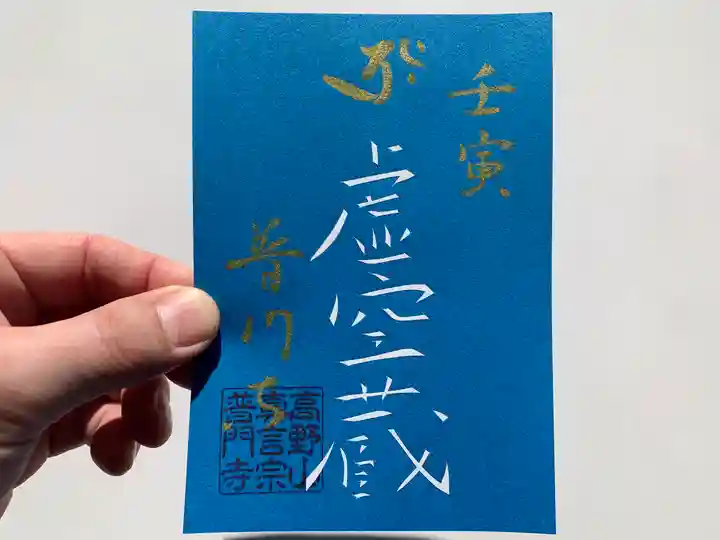 壬寅
𑖝𑖿𑖨𑖾
虚空蔵
普门寺
高野山
真言宗
普門寺